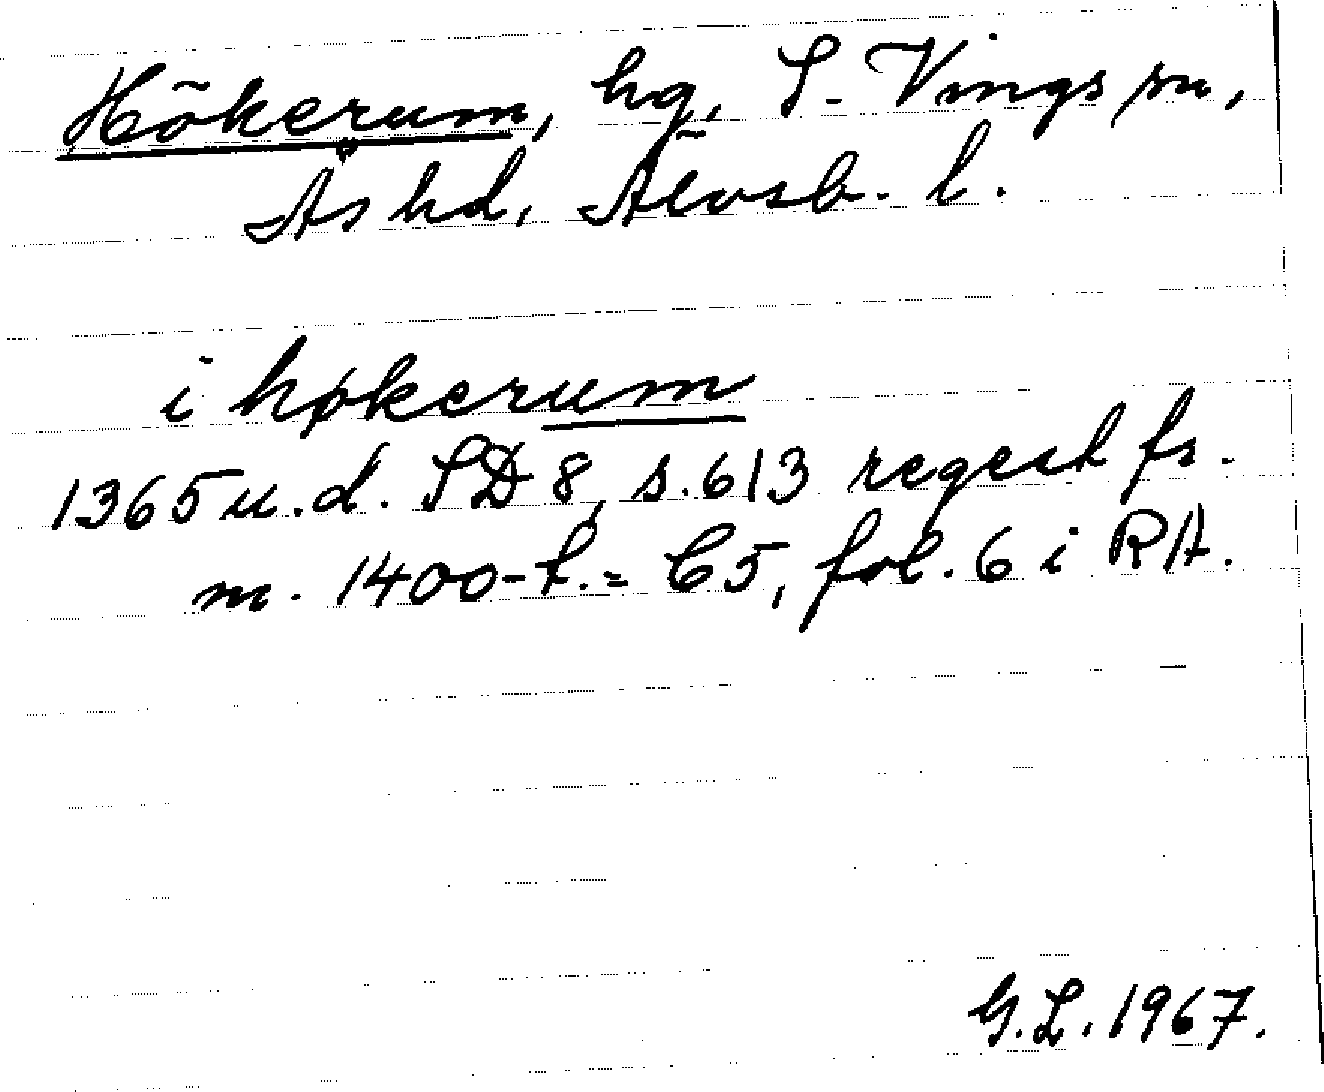 Hökerum, hg, S. Vings sn,
Ås hd, Älvsb. l.
i høkerum
1365 u.d. SD 8, s. 613 regest fr.
m. 1400-t. = C5, fol. 6 i RA.
G.L. 1967.